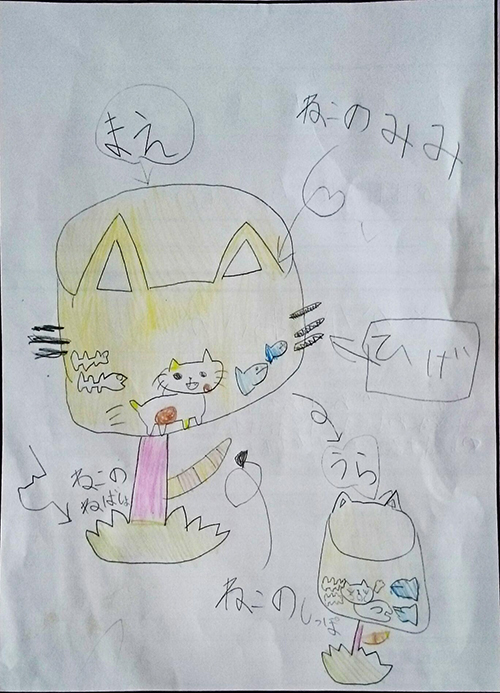 まえ
ねこのみみ
ひげ
うら
ねこの
ねばしょ
ねこのしっぽ